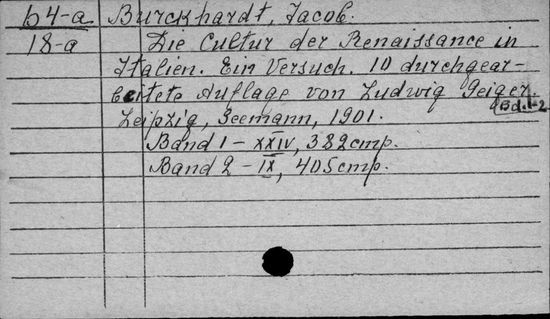 64-a Burckhardt, Jacob.
18-a Die Cultur der Renaissance in
Italien. Ein Versuch. 10 durchgear-
beitete Auflage von Ludwig Geiger.
Bd.1-2
Leipzig, Seemann, 1901.
Band 1 - XXIV, 382 cmp.
Band 2 - IX, 405 cmp.